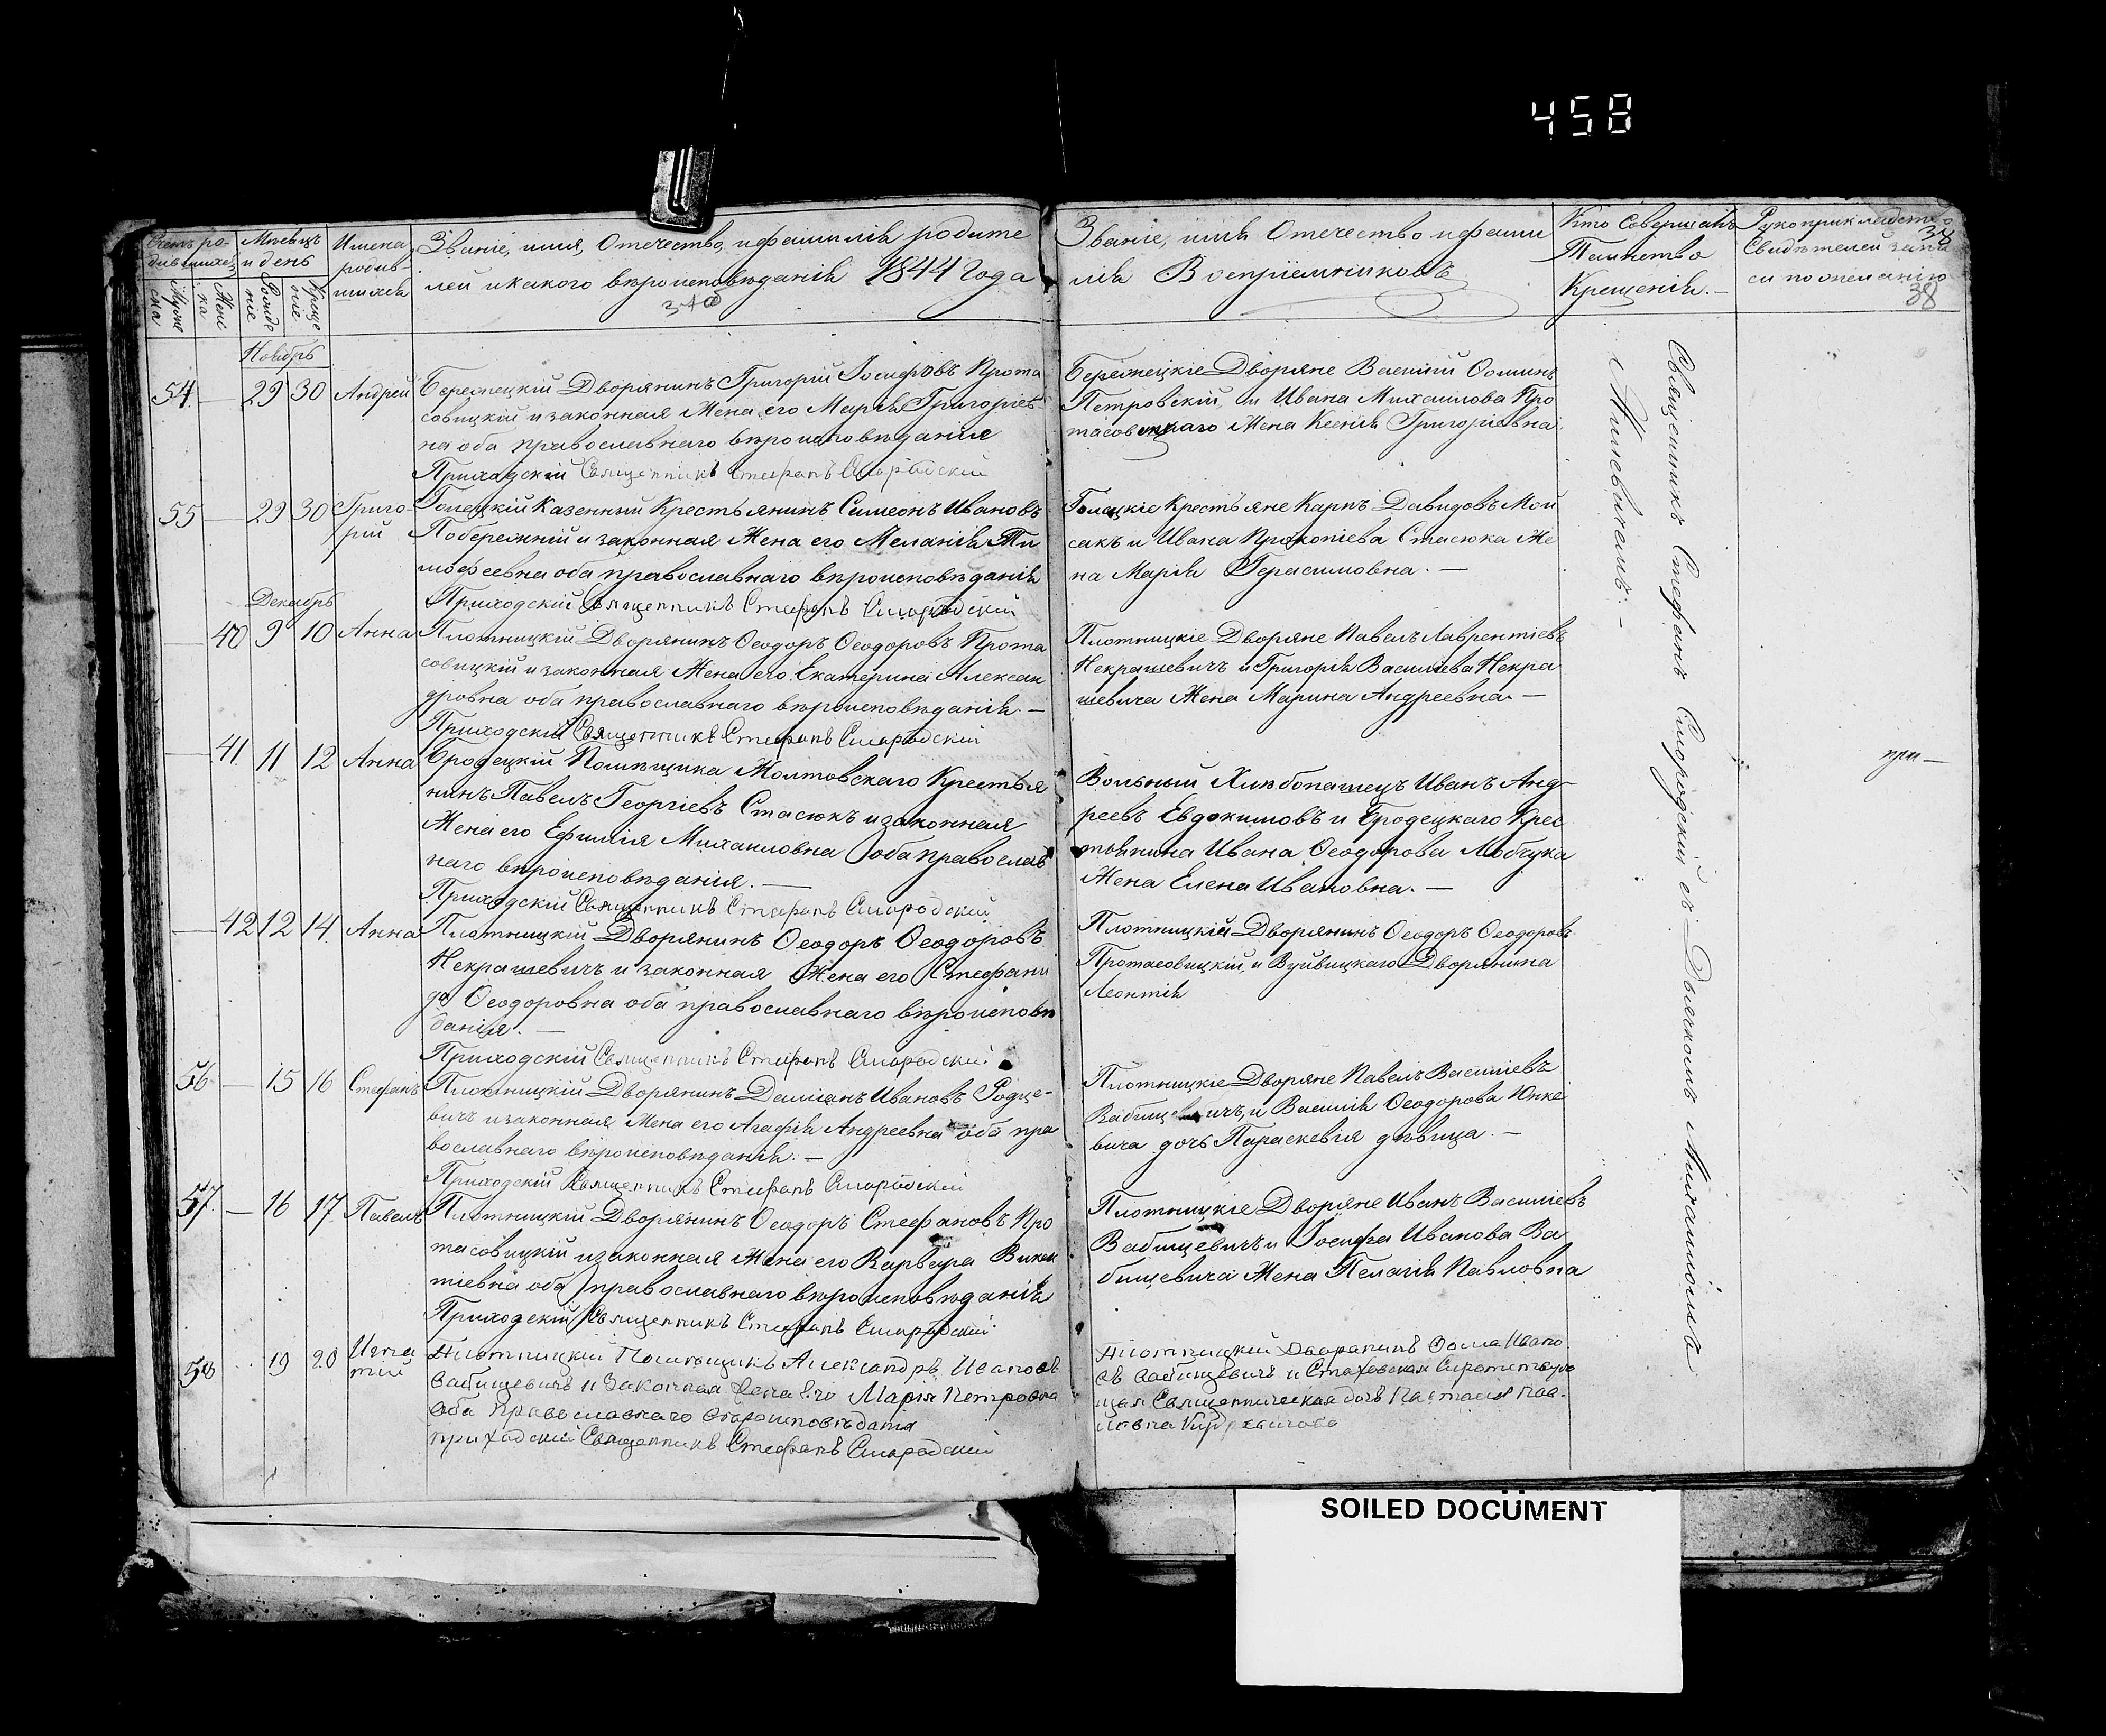 458
Счетъ ро-
дившихся
Муже
ска
Жен
ка
Мѣсяцъ
и день
Рожде
ніе
Креще
ніе
Имена
родив-
шихся
Званіе, имя, Отечество, и фамилія родите
лей и какого вѣроисповѣданія 1844 Года
340
Званіе, имя Отечество и фами
лія Воспріемниковъ
Кто Совершалъ
Таинство
Крещенія. —
Рукоприкладство
Свидѣтелей запи
си по желанію
38
38
Ноябрь
54. — 29 30 Андрей
Бережецкій Дворянинъ Григорій Іосифовъ Прота
совицкій и законная Жена его Марія Григоріев
на оба православнаго вѣроисповѣданія
Приходскій Священникъ Стефанъ Смородскій
Бережецкіе Дворяне Василій Ооминъ
Петровскій, и Ивана Михаилова Про
тасовицкаго Жена Ксенія Григоріевна.
55 — 29 30 Григо-
рій
Голецкій Казенный Крестьянинъ Симеонъ Ивановъ
Побережній и законная Жена его Меланія Ти
мофеевна оба православнаго вѣроисповѣданія
Приходскій Священникъ Стефанъ Смородскій
Голецкіе Крестьяне Карпъ Давидовъ Мои
сакъ и Ивана Прокопіева Стасюка Же
на Марія Герасимовна. —
Декабрь
— 40 9 10 Анна
Плотницкій Дворянинъ Ѳеодоръ Ѳеодоровъ Прота
совицкій и законная Жена его Екатерина Алексан
дровна оба православнаго вѣроисповѣданія. —
Приходскій Священникъ Стефанъ Смородскій
Плотницкіе Дворяне Павелъ Лаврентіевъ
Некрашевичъ и Григорія Василіева Некра
шевича Жена Марина Андреевна. —
— 41. 11 12 Анна
Бродецкій Помѣщика Жолтовскаго Крестья
нинъ Павелъ Георгіевъ Стасюкъ и законная
Жена его Ефимія Михаиловна оба православ
наго вѣроисповѣданія. —
Приходскій Священникъ Стефанъ Смородскій
Вольный Хлѣбопашецъ Иванъ Анд-
реевъ Евдокимовъ и Бродецкаго Крес
тьянина Ивана Ѳеодорова Лобчука
Жена Елена Ивановна. —
при —
— 42 12 14. Анна
Плотницкій Дворянинъ Ѳеодоръ Ѳеодоровъ
Некрашевичъ и законная Жена его Стефани
да Ѳеодоровна оба православнаго вѣроисповѣ
данія. —
Приходскій Священникъ Стефанъ Смородскій
Плотницкій Дворянинъ Ѳеодоръ Ѳеодоровъ
Протасовицкій, и Вуйвицкаго Дворянина
Леонтія
56 — 15 16 Стефанъ
Плотницкій Дворянинъ Даміанъ Ивановъ Родце-
вичъ и законная Жена его Агафія Андреевна оба пра
вославнаго вѣроисповѣданія. —
Приходскій Священникъ Стефанъ Смородскій
Плотницкіе Дворяне Павелъ Василіевъ
Вабищевичъ, и Василія Ѳеодорова Юнке
вича дочь Параскевія дѣвица. —
57. — 16 17. Павелъ
Плотницкій Дворянинъ Ѳеодоръ Стефановъ Про
тасовицкій и законная Жена его Варвара Викен
тіевна оба православнаго вѣроисповѣданія
Приходскій Священникъ Стефанъ Смородскій
Плотницкіе Дворяне Иванъ Василіевъ
Вабищевичъ и Іосифа Иванова Ва
бищевича Жена Пелагія Павловна
58 19 20 Игна
тій
Плотницкій Помѣщикъ Александръ Ивановъ
Вабищевичъ и Законная Жена Его Марія Петровна
Оба Православнаго Вѣроисповѣданія
Приходскій Священникъ Стефанъ Смородскій
Плотницкій Дворянинъ Ѳома Ивано
въ Вабищевичъ и Стаховская
Священническая дочь Настасія Пав
ловна
Священникъ Стефанъ Смородскій съ Дьячкомъ Михаиломъ
SOILED DOCUMENT